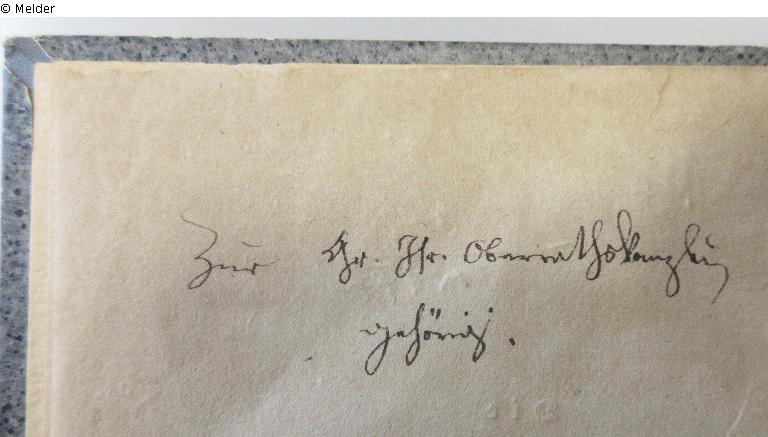 © Melder
Zur Gr. Isr. Oberrathskanzlei
gehörig.